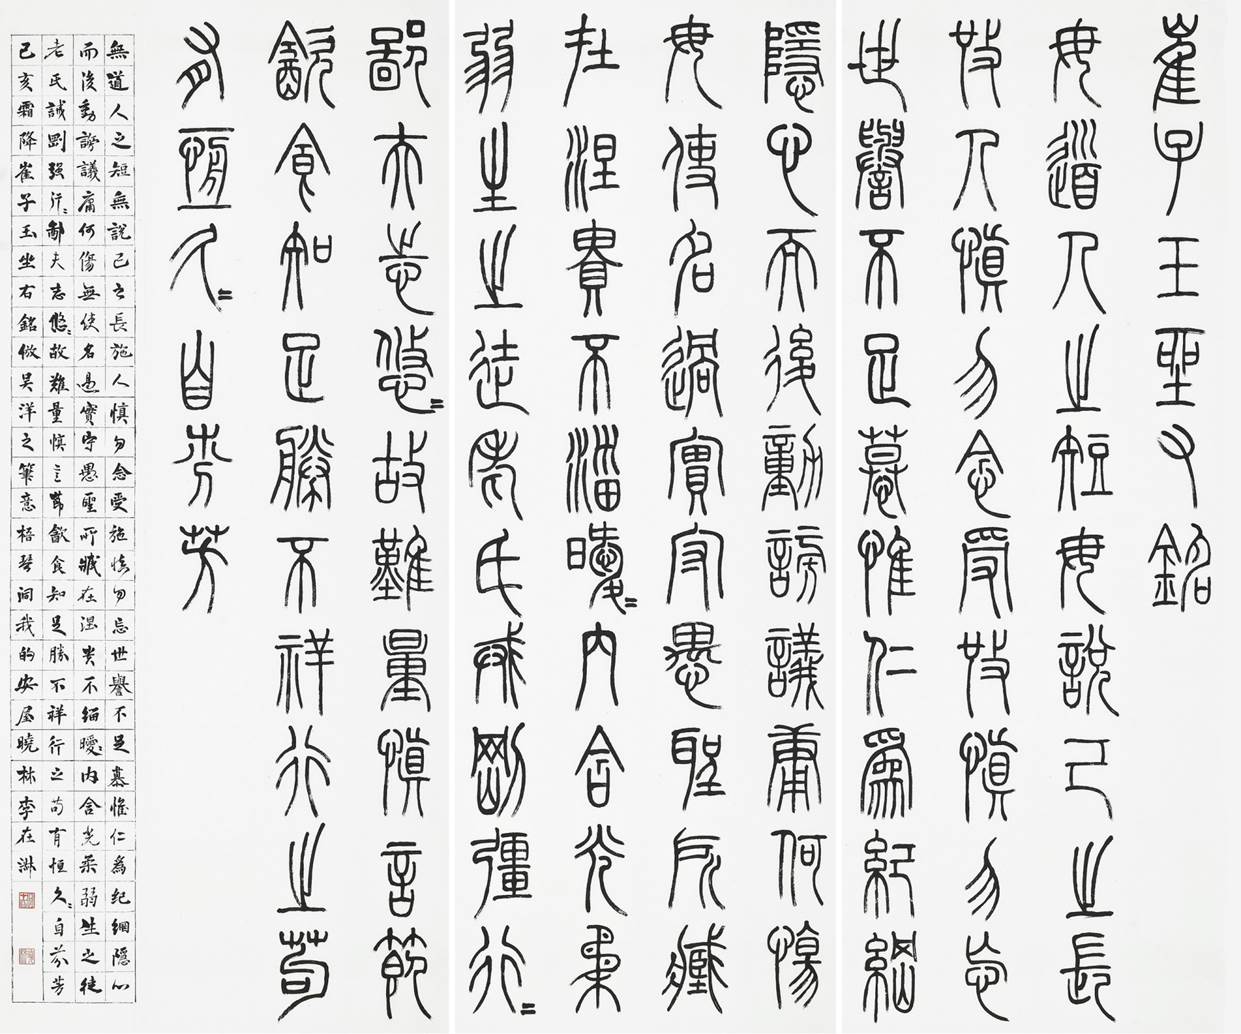 崔子玉坐右銘
毋道人之短毋說己之長
攱人慎勿念受攱慎勿忘
世譽不足慕惟仁為紀綱
隱心而後動謗議庸何傷
毋使名過實守愚聖所臧
在涅貴不淄曖=內含光柔
弱生之徒老氏戒剛彊行=
鄙夫志悠=故難量慎言節
飲食知足勝不祥行之苟
有恆久=自芬芳
無道人之短無說己之長施人慎勿念受施慎勿忘世譽不足慕惟仁為紀綱隱心
而後動謗議庸何傷無使名過實守愚聖所臧在涅貴不緇曖=內含光柔弱生之徒
老氏誡剛强行=鄙夫志悠=故難量慎言節飲食知足勝不祥行之苟有恒久=自芬芳
己亥霜降崔子玉坐右銘倣吴洋之筆意梧琴洞我的央屋曉林李在淋